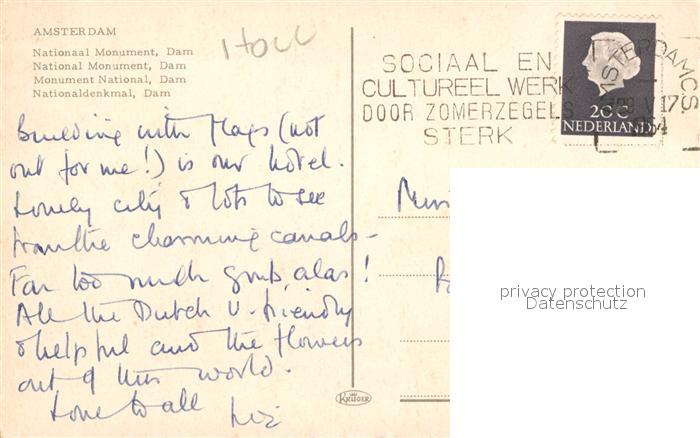 AMSTERDAM
Nationaal Monument, Dam
National Monument, Dam
Monument National, Dam
Nationaldenkmal, Dam
Holl
Building with flags (not
out for me!) is our hotel.
Lovely city & lots to see
from the charming canals –
Far too much grub, alas!
All the Dutch V. friendly
& helpful and the flowers
out of this world.
Love to all Liz
SOCIAAL EN
CULTUREEL WERK
DOOR ZOMERZEGELS
STERK
AMSTERDAM C.S.
17
1964
20 C
NEDERLAND
KRÜGER
privacy protection
Datenschutz